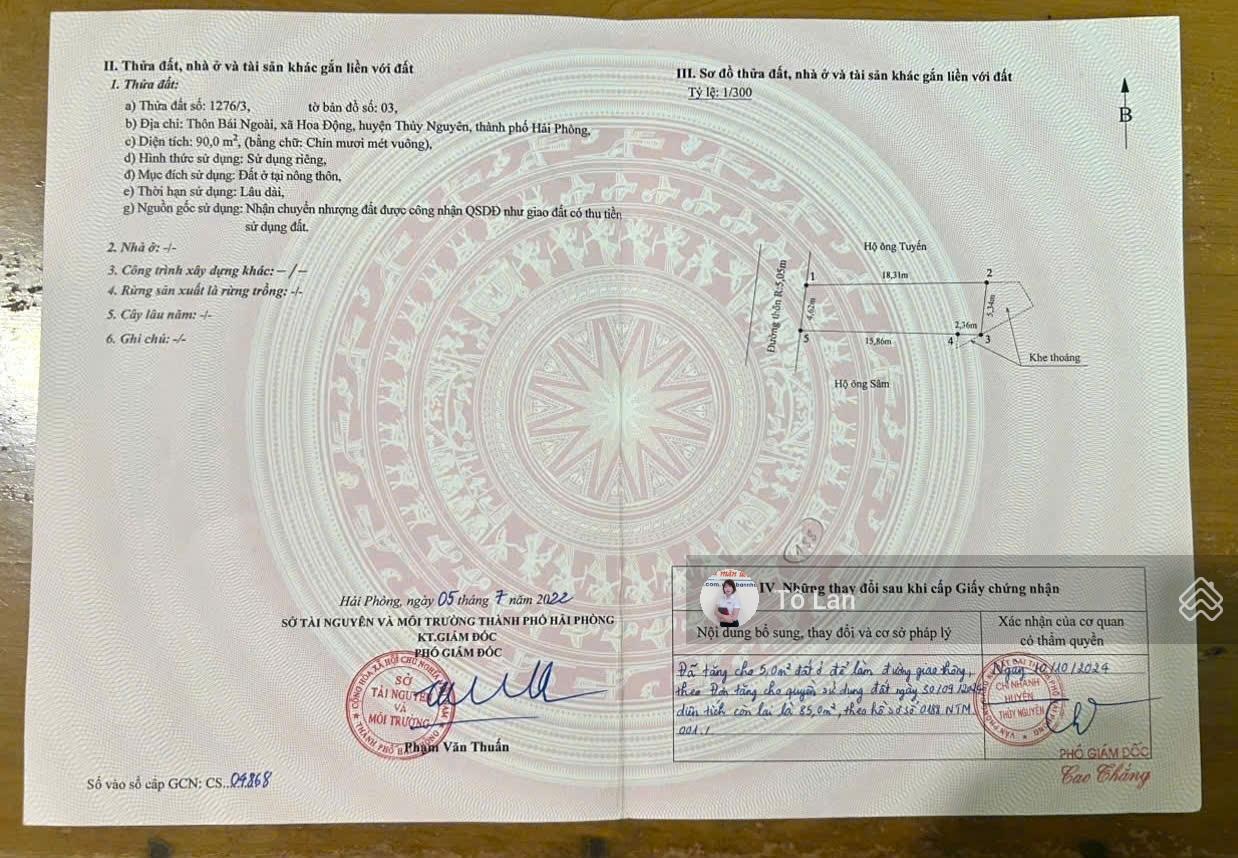 II. Thửa đất, nhà ở và tài sản khác gắn liền với đất
1. Thửa đất:
a) Thửa đất số: 1276/3, tờ bản đồ số: 03,
b) Địa chỉ: Thôn Bái Ngoài, xã Hoa Động, huyện Thủy Nguyên, thành phố Hải Phòng,
c) Diện tích: 90,0 m², (bằng chữ: Chín mươi mét vuông),
d) Hình thức sử dụng: Sử dụng riêng,
đ) Mục đích sử dụng: Đất ở tại nông thôn,
e) Thời hạn sử dụng: Lâu dài,
g) Nguồn gốc sử dụng: Nhận chuyển nhượng đất được công nhận QSDĐ như giao đất có thu tiền
sử dụng đất.
2. Nhà ở: -/-
3. Công trình xây dựng khác: -/-
4. Rừng sản xuất là rừng trồng: -/-
5. Cây lâu năm: -/-
6. Ghi chú: -/-
Hải Phòng, ngày 05 tháng 7 năm 2022
SỞ TÀI NGUYÊN VÀ MÔI TRƯỜNG THÀNH PHỐ HẢI PHÒNG
KT.GIÁM ĐỐC
PHÓ GIÁM ĐỐC
SỞ
TÀI NGUYÊN
VÀ
MÔI TRƯỜNG
Phạm Văn Thuấn
Số vào sổ cấp GCN: CS..09868
III. Sơ đồ thửa đất, nhà ở và tài sản khác gắn liền với đất
Tỷ lệ: 1/300
B
Hộ ông Tuyến
Đường thôn R:5,05m
1
18,31m
2
4,62m
5,34m
5
15,86m
2,36m
4
3
Khe thoáng
Hộ ông Sâm
IV. Những thay đổi sau khi cấp Giấy chứng nhận
Tô Lan
Nội dung bổ sung, thay đổi và cơ sở pháp lý
Xác nhận của cơ quan
có thẩm quyền
Đã tặng cho 5,0m² đất ở để làm đường giao thông,
theo Đơn tặng cho quyền sử dụng đất ngày 30/09/2024
diện tích còn lại là 85,0m², theo hồ sơ số 0188.NTM
001./.
Ngày 10/10/2024
CHI NHÁNH
HUYỆN
THỦY NGUYÊN
PHÓ GIÁM ĐỐC
Cao Thắng